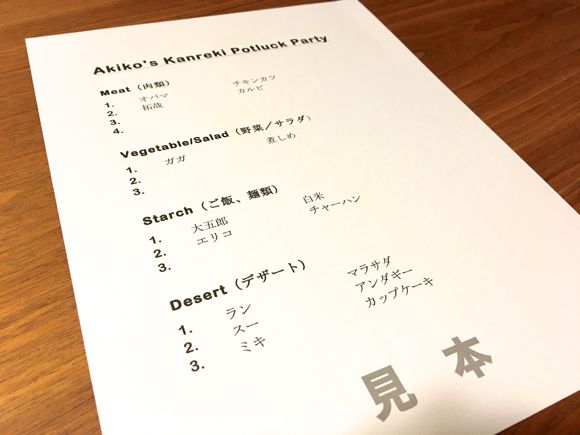 Akiko's Kanreki Potluck Party
Meat（肉類）
1. オバマ チキンカツ
2. 拓哉 カルビ
3.
4.
Vegetable/Salad（野菜／サラダ）
1. ガガ 煮しめ
2.
3.
Starch（ご飯、麺類）
1. 大五郎 白米
2. エリコ チャーハン
3.
Desert（デザート）
1. ラン マラサダ
2. スー アンダギー
3. ミキ カップケーキ
見本